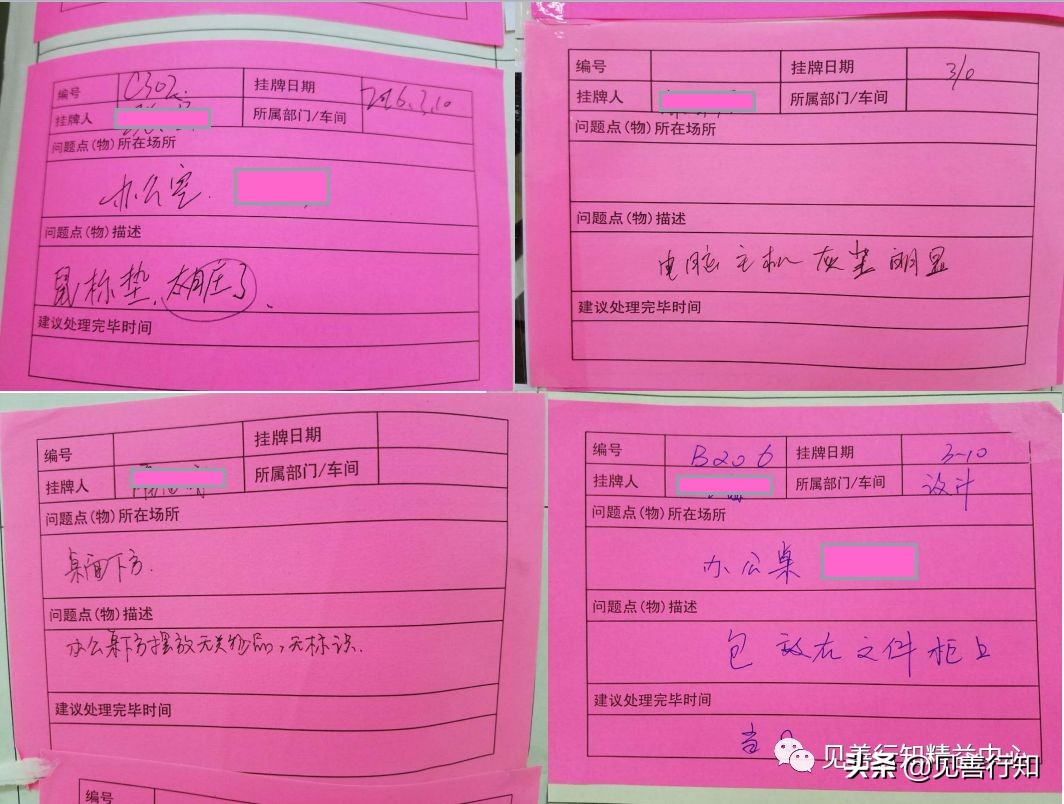 编号 C302. 挂牌日期 2016.3.10
挂牌人 所属部门/车间
问题点(物)所在场所
办公室.
问题点(物)描述
鼠标垫.太脏了、
建议处理完毕时间
编号 挂牌日期 3/0
挂牌人 所属部门/车间
问题点(物)所在场所
问题点(物)描述
电脑主机灰尘明显
建议处理完毕时间
编号 挂牌日期
挂牌人 所属部门/车间
问题点(物)所在场所
桌面下方.
问题点(物)描述
办公桌下方摆放无关物品,无标识.
建议处理完毕时间
编号
编号 B206 挂牌日期 3-10
挂牌人 所属部门/车间 设计
问题点(物)所在场所
办公桌
问题点(物)描述
包放在文件柜上
建议处理完毕时间
当
见善行知精益中心
头条 @见善行知